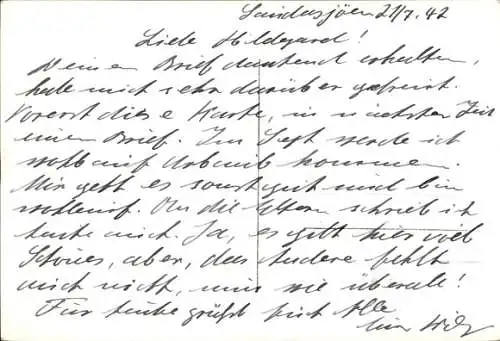 Sandessjöen 21/7. 42
Liebe Hildegard!
Deinen Brief dankend erhalten,
habe mich sehr darüber gefreut.
Vorerst diese Karte, in nächster Zeit
einen Brief. Im Sept werde ich
wohl auf Urlaub kommen.
Mir geht es sonst gut und bin
wohlauf. An die Eltern schrieb ich
heute auch. Ja, es gibt hier viel
Schönes, aber, das Andere fehlt
auch nicht, wie überall!
Für heute grüßt Dich Alle